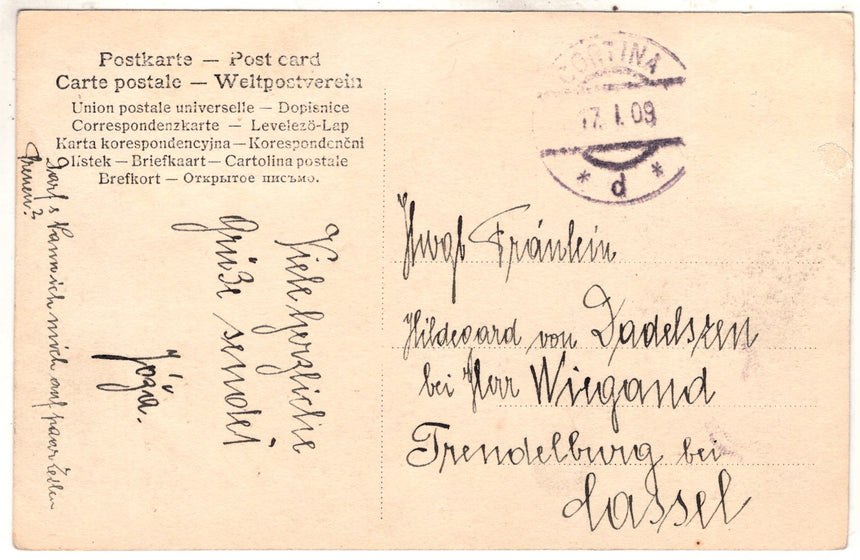 Postkarte — Post card
Carte postale — Weltpostverein
Union postale universelle — Dopisnice
Correspondenzkarte — Levelező-Lap
Karta korespondencyjna — Korespondenční
lístek — Briefkaart — Cartolina postale
Brefkort — Открытое письмо.
CORTINA
17. I. 09
* d *
Viele herzliche
Grüße sendet
Józa.
Darf s kann ich mich auf paar Zeilen
freuen?
Fräulein
Hildegard von Dadelszen
bei Herr Wiegand
Trendelburg bei
Cassel